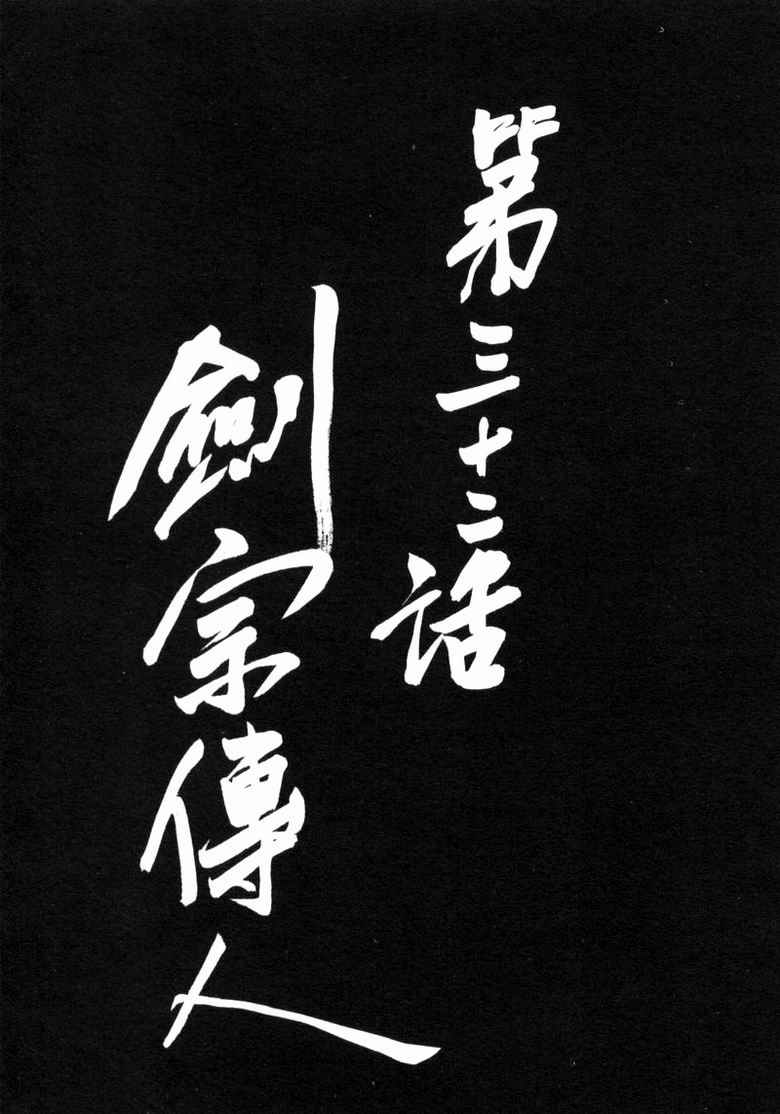 第三十二話
劍宗傳人